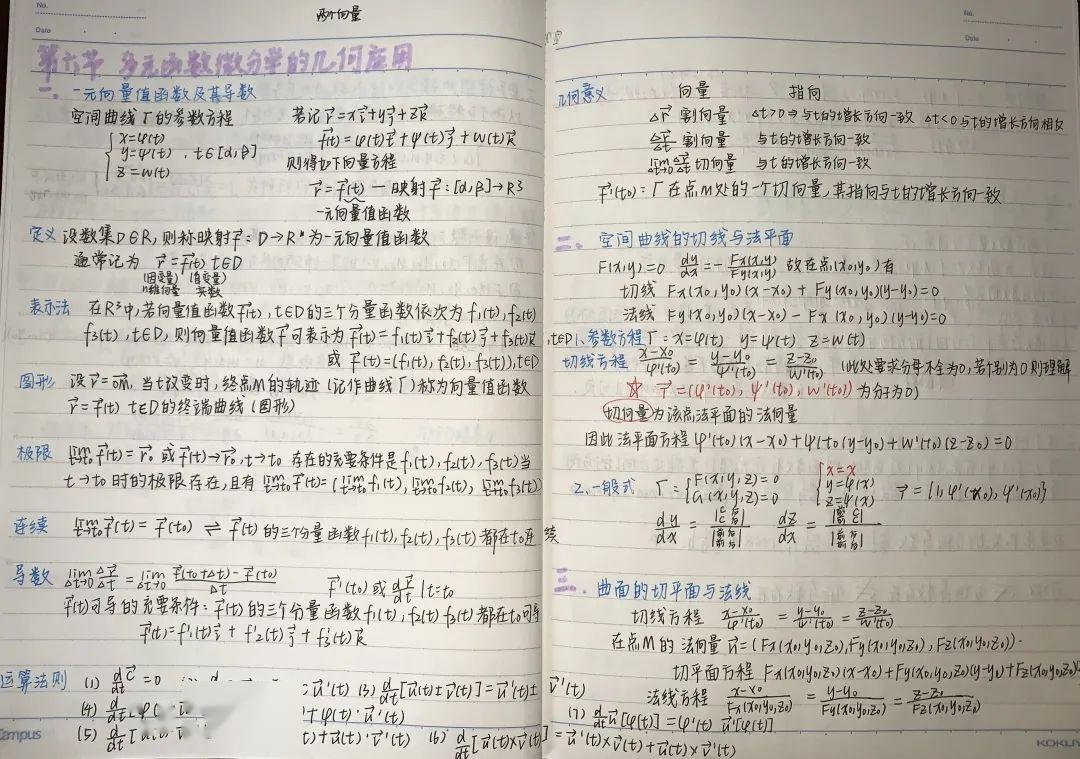 两个向量
No.
Date
第六节 多元函数微分学的几何应用
一. 一元向量值函数及其导数
空间曲线Γ的参数方程 若记r⃗=xi⃗+yj⃗+zk⃗
{x=φ(t) y=ψ(t), t∈[α,β] z=w(t)
f⃗(t)=φ(t)i⃗+ψ(t)j⃗+w(t)k⃗
则得如下向量方程
r⃗=f⃗(t) — 映射f⃗:[α,β]→R³
一元向量值函数
定义 设数集D∈R,则称映射f⃗:D→Rⁿ为一元向量值函数
通常记为 r⃗=f⃗(t) t∈D
(因变量) (自变量)
n维向量 实数
表示法 在R³中,若向量值函数f⃗(t),t∈D的三个分量函数依次为f₁(t),f₂(t)
f₃(t),t∈D,则向量值函数f⃗可表示为f⃗(t)=f₁(t)i⃗+f₂(t)j⃗+f₃(t)k⃗,t∈D
或f⃗(t)=(f₁(t),f₂(t),f₃(t)),t∈D
图形 设r⃗=OM⃗,当t改变时,终点M的轨迹(记作曲线Γ)称为向量值函数
r⃗=f⃗(t) t∈D的终端曲线(图形)
极限 lim t→t₀ f⃗(t)=r⃗₀或f⃗(t)→r⃗₀,t→t₀ 存在的充要条件是f₁(t),f₂(t),f₃(t)当
t→t₀时的极限存在,且有lim t→t₀ f⃗(t)=(lim t→t₀ f₁(t),lim t→t₀ f₂(t),lim t→t₀ f₃(t))
连续 lim t→t₀ f⃗(t)=f⃗(t₀) ⇌ f⃗(t)的三个分量函数f₁(t),f₂(t),f₃(t)都在t₀连续
导数 lim Δt→0 Δr⃗/Δt = lim Δt→0 (f⃗(t₀+Δt)-f⃗(t₀))/Δt f⃗'(t₀)或dr⃗/dt|t=t₀
f⃗(t)可导的充要条件:f⃗(t)的三个分量函数f₁(t),f₂(t)f₃(t)都在t₀可导
f⃗'(t)=f'₁(t)i⃗+f'₂(t)j⃗+f'₃(t)k⃗
运算法则 (1) d/dt C⃗=0 :u⃗'(t) (3) d/dt[u⃗(t)±v⃗(t)]=u⃗'(t)±v⃗'(t)
(4) d/dt +φ(t)·u⃗'(t)
(5) d/dt[ t)+u⃗(t)·v⃗'(t) (6) d/dt[u⃗(t)×v⃗(t)]=u⃗'(t)×v⃗(t)+u⃗(t)×v⃗'(t)
Campus
No.
Date
几何意义 向量 指向
Δr⃗ 割向量 Δt>0⇒与t的增长方向一致 Δt<0与t的增长方向相反
Δr⃗/Δt 割向量 与t的增长方向一致
lim Δt→0 Δr⃗/Δt 切向量 与t的增长方向一致
f⃗'(t₀):Γ在点M处的一个切向量,其指向与t的增长方向一致
二. 空间曲线的切线与法平面
F(x,y)=0 dy/dx=-Fx(x,y)/Fy(x,y) 故在点(x₀,y₀)有
切线 Fx(x₀,y₀)(x-x₀)+Fy(x₀,y₀)(y-y₀)=0
法线 Fy(x₀,y₀)(x-x₀)-Fx(x₀,y₀)(y-y₀)=0
1、参数方程Γ:x=φ(t) y=ψ(t) z=w(t)
切线方程 (x-x₀)/φ'(t₀)=(y-y₀)/ψ'(t₀)=(z-z₀)/w'(t₀) (此处要求分母不全为0,若个别为0则理解
☆ r⃗=(φ'(t₀),ψ'(t₀),w'(t₀)) 为分子为0)
切向量为该点法平面的法向量
因此法平面方程φ'(t₀)(x-x₀)+ψ'(t₀)(y-y₀)+w'(t₀)(z-z₀)=0
2、一般式 Γ={F(x,y,z)=0 G(x,y,z)=0 {x=x y=φ(x) z=ψ(x) r⃗={1,φ'(x₀),ψ'(x₀)}
dy/dx= dz/dx=
三. 曲面的切平面与法线
切线方程 (x-x₀)/φ'(t₀)=(y-y₀)/ψ'(t₀)=(z-z₀)/w'(t₀)
在点M的法向量n⃗=(Fx(x₀,y₀,z₀),Fy(x₀,y₀,z₀),Fz(x₀,y₀,z₀))·
切平面方程 Fx(x₀,y₀,z₀)(x-x₀)+Fy(x₀,y₀,z₀)(y-y₀)+Fz(x₀,y₀,z₀)
法线方程 (x-x₀)/Fx(x₀,y₀,z₀)=(y-y₀)/Fy(x₀,y₀,z₀)=(z-z₀)/Fz(x₀,y₀,z₀)
(7) d/dt u⃗[φ(t)]=φ'(t)u⃗'[φ(t)]